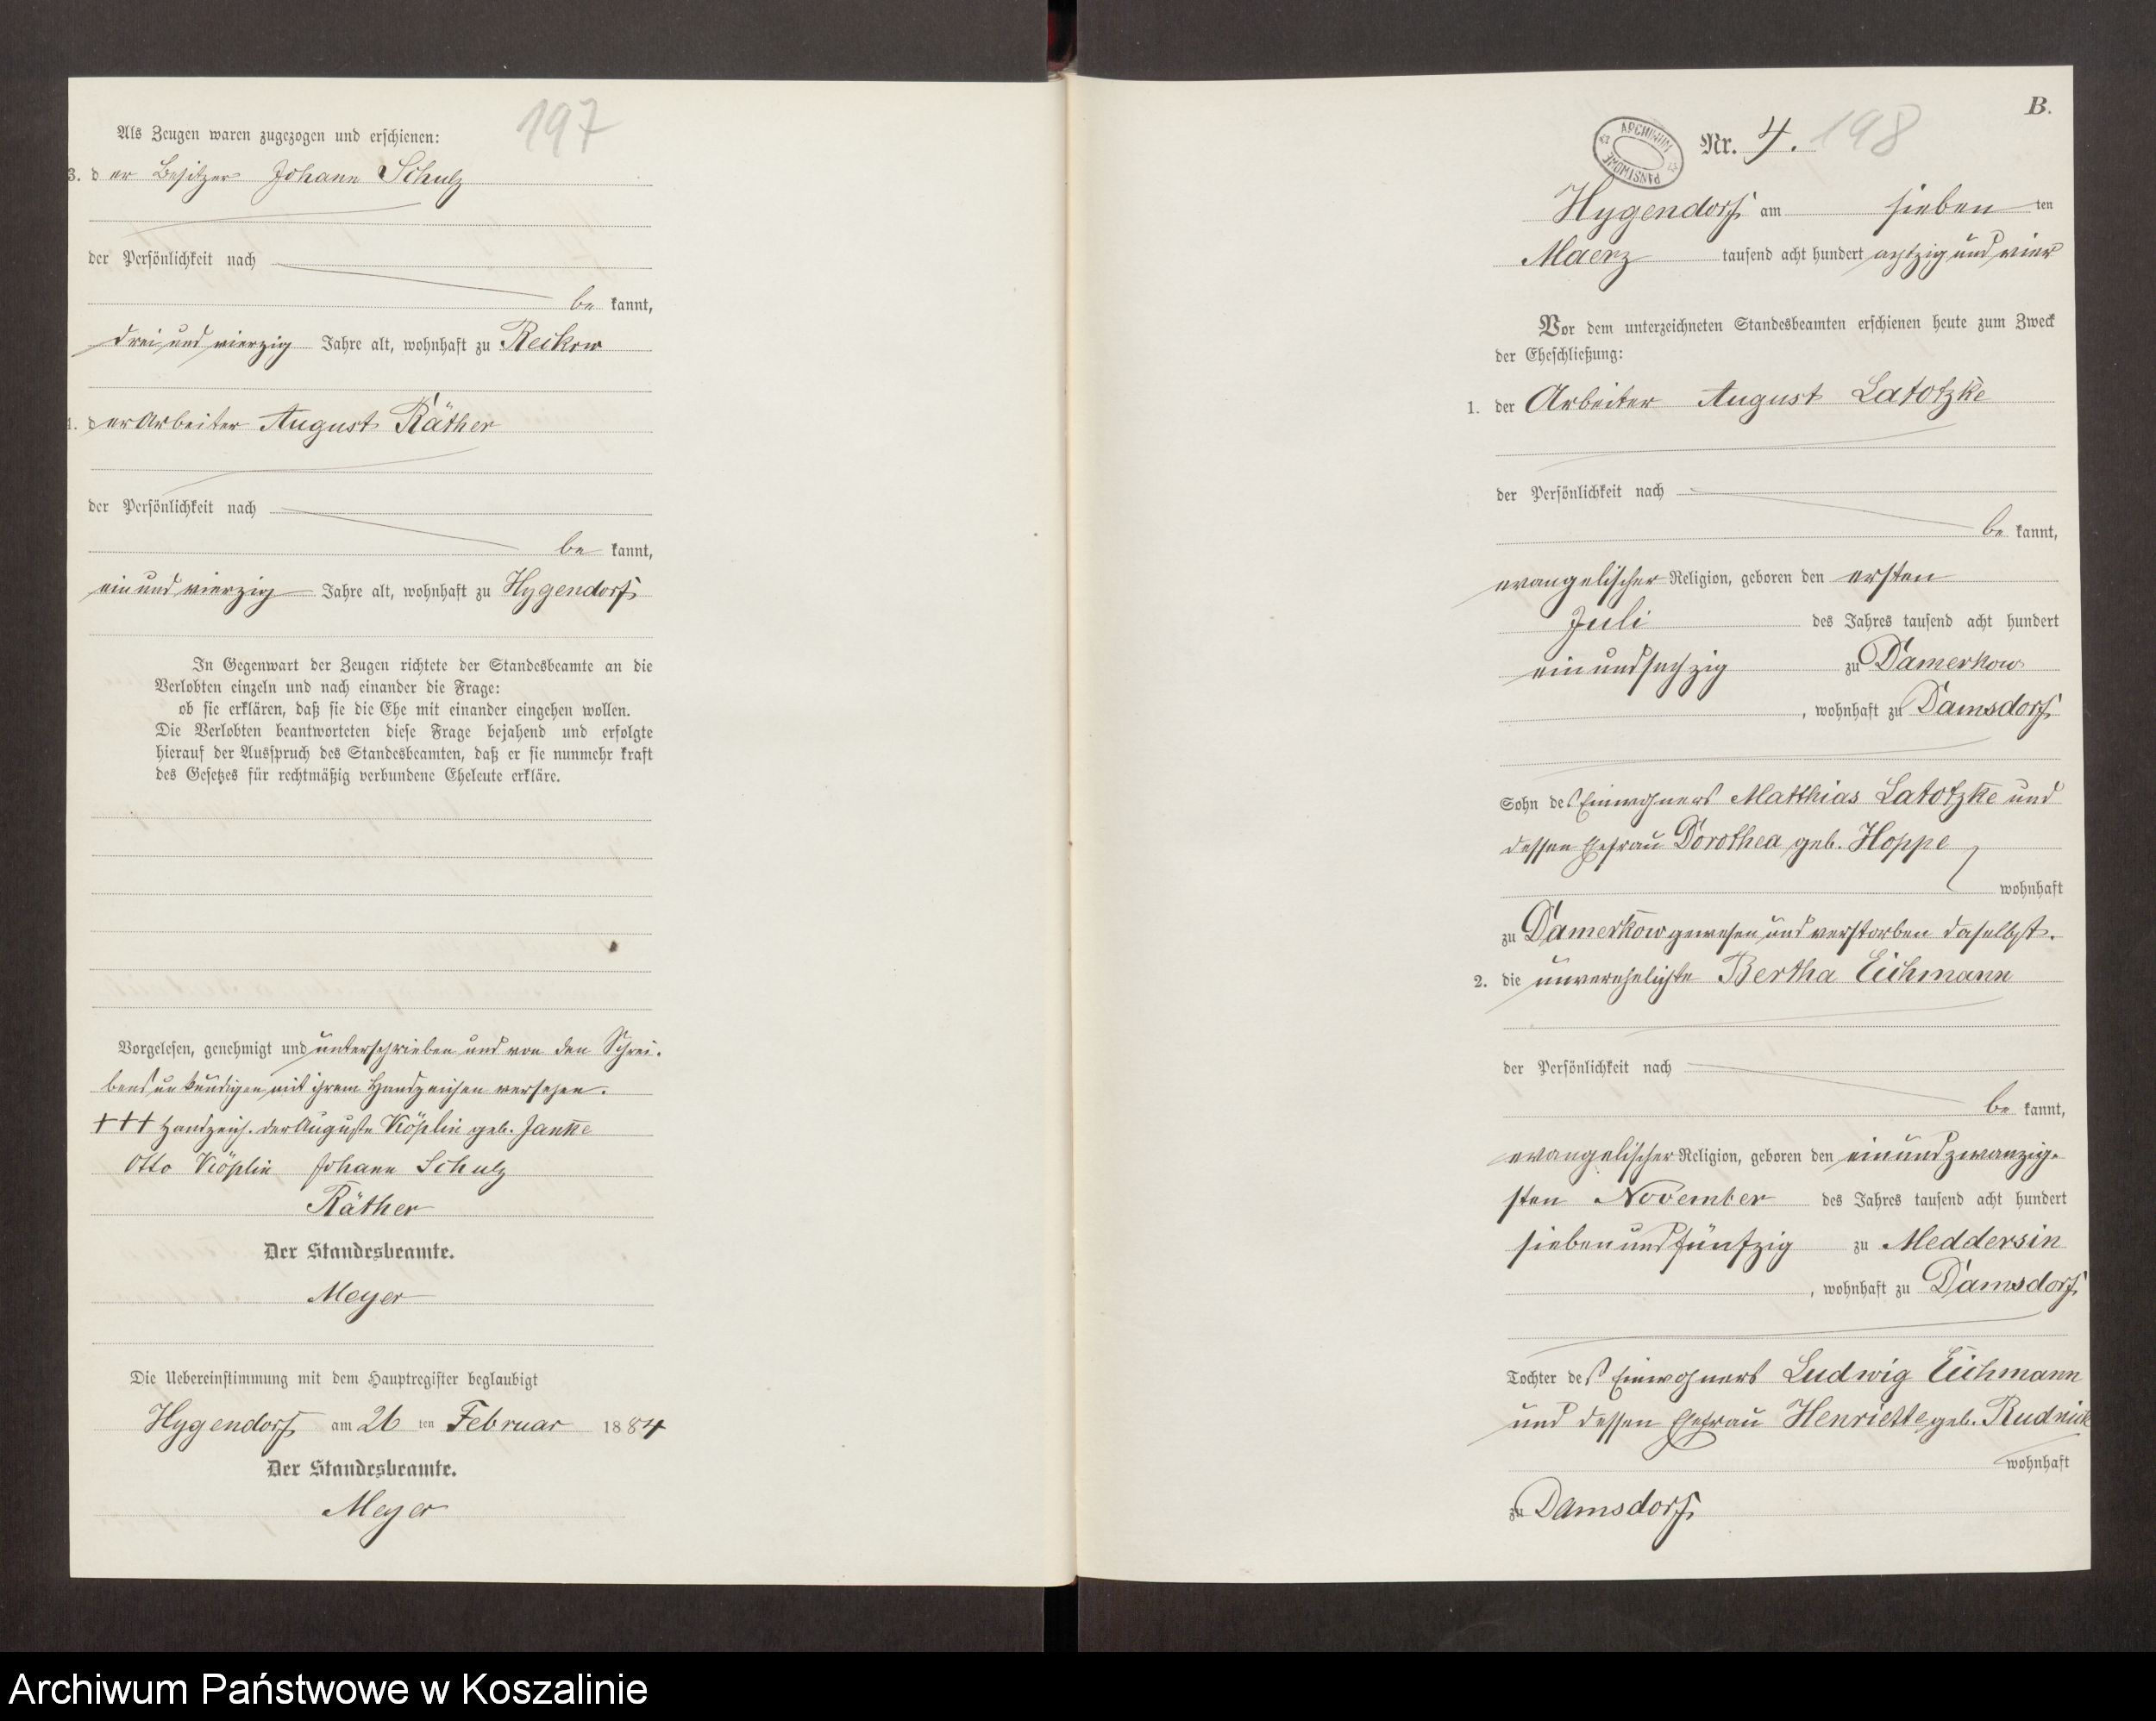 197
Als Zeugen waren zugezogen und erschienen:
3. der Besitzer Johann Schulz
der Persönlichkeit nach
bekannt,
drei und vierzig Jahre alt, wohnhaft zu Reckow
der Arbeiter August Räther
der Persönlichkeit nach
bekannt,
ein und vierzig Jahre alt, wohnhaft zu Hygendorf
In Gegenwart der Zeugen richtete der Standesbeamte an die
Verlobten einzeln und nach einander die Frage:
ob sie erklären, daß sie die Ehe mit einander eingehen wollen.
Die Verlobten beantworteten diese Frage bejahend und erfolgte
hierauf der Ausspruch des Standesbeamten, daß er sie nunmehr kraft
des Gesetzes für rechtmäßig verbundene Eheleute erkläre.
Vorgelesen, genehmigt und unterschrieben und von den Schrei-
bensunkundigen mit ihrem Handzeichen versehen.
+++ Handzeich. der Auguste Köplin geb. Janke
Otto Köplin Johann Schulz
Räther
Der Standesbeamte.
Meyer
Die Uebereinstimmung mit dem Hauptregister beglaubigt
Hygendorf am 26ten Februar 1884
Der Standesbeamte.
Meyer
B.
ARCHIWUM PAŃSTWOWE
Nr. 4. 198
Hygendorf am siebenten
Maerz tausend acht hundert achtzig und vier
Vor dem unterzeichneten Standesbeamten erschienen heute zum Zweck
der Eheschließung:
1. der Arbeiter August Latotzke
der Persönlichkeit nach
bekannt,
evangelischer Religion, geboren den ersten
Juli des Jahres tausend acht hundert
ein und sechzig zu Damerkow
, wohnhaft zu Damsdorf
Sohn des Einwohners Matthias Latotzke und
dessen Ehefrau Dorothea geb. Hoppe
wohnhaft
zu Damerkow gewesen und verstorben daselbst.
2. die unverehelichte Bertha Eichmann
der Persönlichkeit nach
bekannt,
evangelischer Religion, geboren den ein und zwanzig-
sten November des Jahres tausend acht hundert
sieben und fünfzig zu Meddersin
, wohnhaft zu Damsdorf
Tochter des Einwohners Ludwig Eichmann
und dessen Ehefrau Henriette geb. Rudnick
wohnhaft
zu Damsdorf
Archiwum Państwowe w Koszalinie